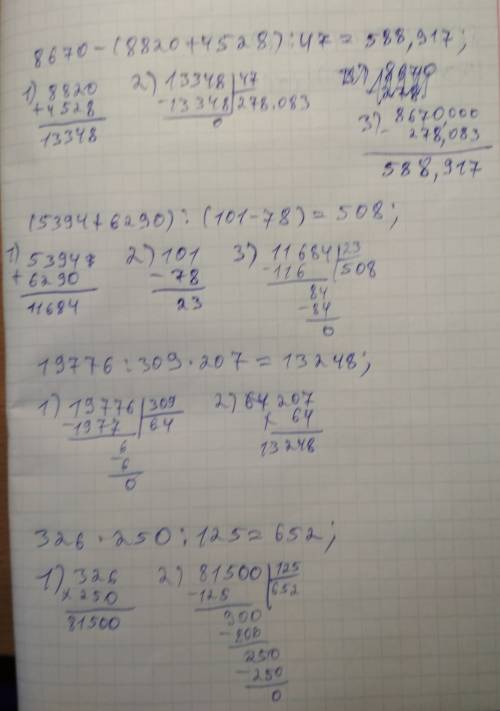 8670-(8820+4528):47=588,917;
1) 8820 2) 13348 47
+4528 -13348 278.083 3) 8670,000
13348 0 - 278,083
588,917
(5394+6290):(101-78)=508;
1) 5394 2) 101 3) 11684 23
+6290 -78 -116 508
11684 23 84
-84
0
19776:309·207=13248;
1) 19776 309 2) 64 207
-1977 64 × 64
6 13248
-6
0
326·250:125=652;
1) 326 2) 81500 125
×250 -125 652
81500 300
-800
250
-250
0